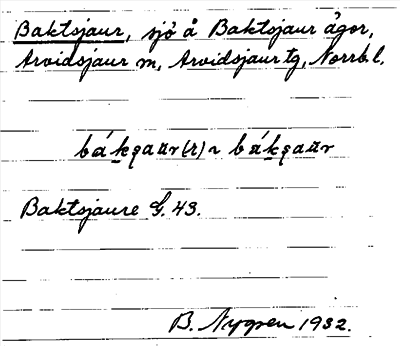 Baktsjaur, sjö å Baktsjaur ägor,
Arvidsjaur m, Arvidsjaur tg, Norrb l.
Baktsjaure G. 43.
B. Nygren 1932.